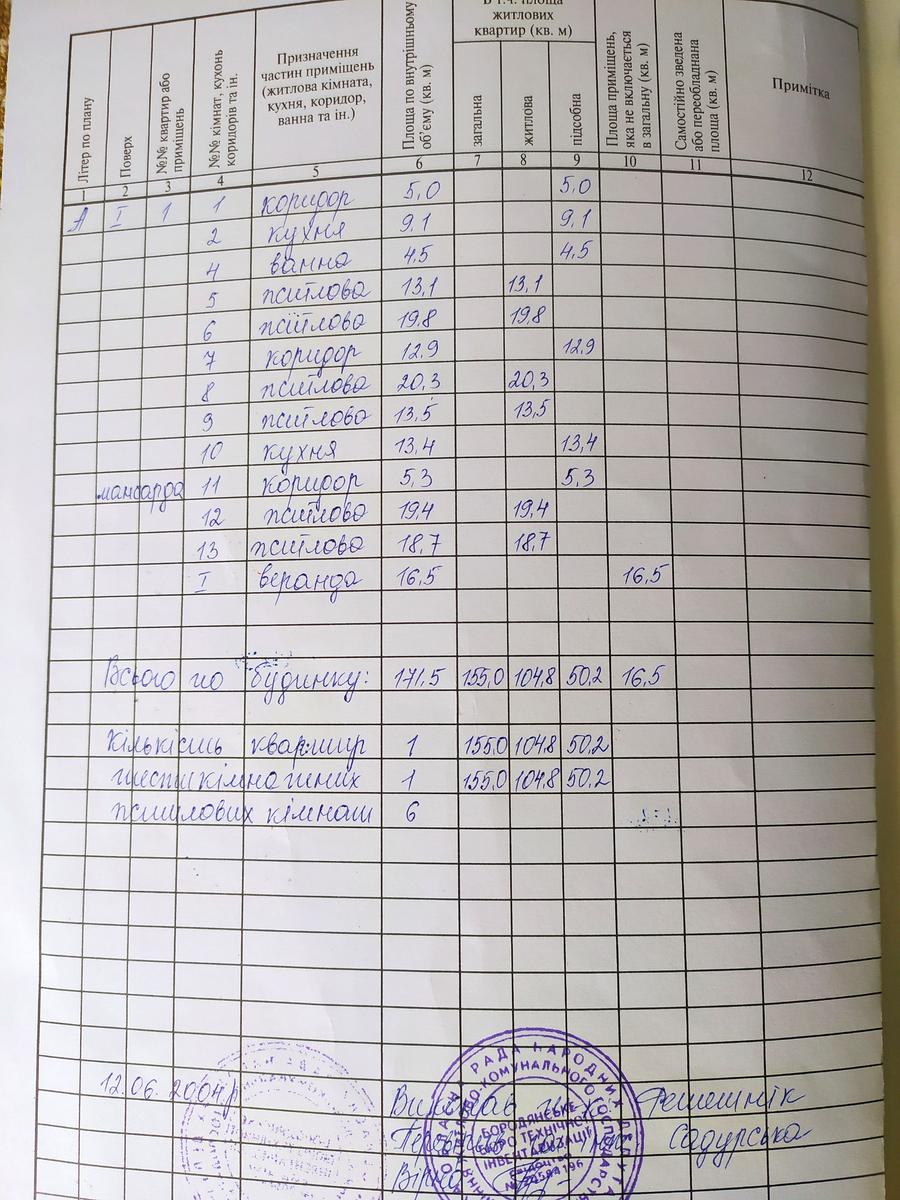 В т.ч. площа житлових квартир (кв. м)
Літер по плану
Поверх
№№ квартир або приміщень
№№ кімнат, кухонь коридорів та ін.
Призначення частин приміщень (житлова кімната, кухня, коридор, ванна та ін.)
Площа по внутрішньому об'єму (кв. м)
загальна
житлова
підсобна
Площа приміщень, яка не включається в загальну (кв. м)
Самостійно зведена або переобладнана площа (кв. м)
Примітка
1 2 3 4 5 6 7 8 9 10 11 12
А I 1 1 коридор 5,0 5,0
2 кухня 9,1 9,1
4 ванна 4,5 4,5
5 житлова 13,1 13,1
6 житлова 19,8 19,8
7 коридор 12,9 12,9
8 житлова 20,3 20,3
9 житлова 13,5 13,5
10 кухня 13,4 13,4
мансарда 11 коридор 5,3 5,3
12 житлова 19,4 19,4
13 житлова 18,7 18,7
I веранда 16,5 16,5
Всього по будинку: 171,5 155,0 104,8 50,2 16,5
Кількість квартир 1 155,0 104,8 50,2
шестикімнатних 1 155,0 104,8 50,2
житлових кімнат 6
12.06.2004р
Виконав Решетнік
Садурська
БОРОДЯНСЬКЕ
БЮРО ТЕХНІЧНОЇ
ІНВЕНТАРИЗАЦІЇ
РАДА НАРОДНИХ